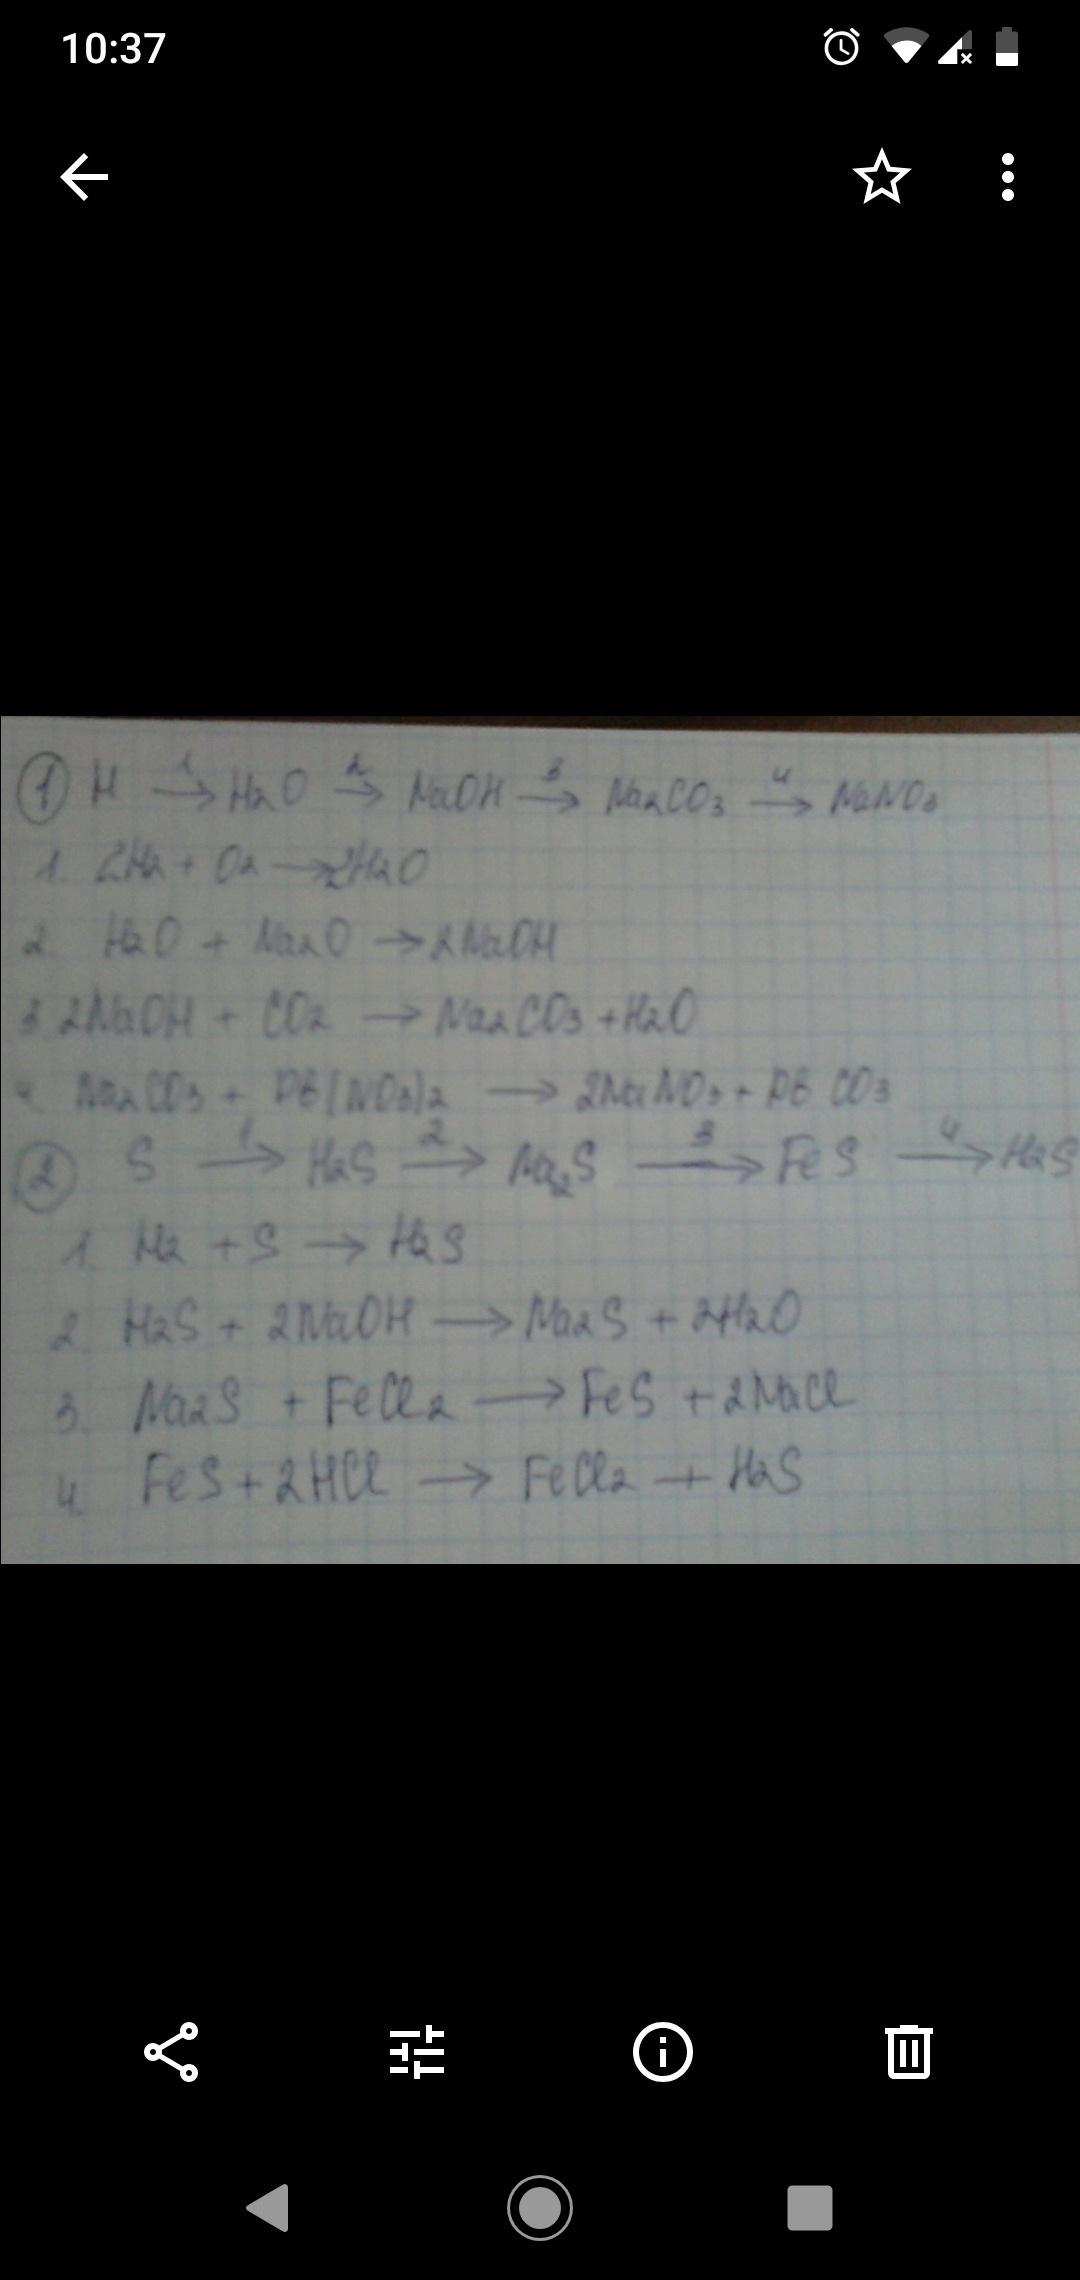 10:37
① H 1→ H2O 2→ NaOH 3→ Na2CO3 4→ NaNO3
1. 2H2 + O2 → 2H2O
2. H2O + Na2O → 2NaOH
3 2NaOH + CO2 → Na2CO3 + H2O
4. Na2CO3 + Pb(NO3)2 → 2NaNO3 + Pb CO3
② S 1→ H2S 2→ Na2S 3→ FeS 4→ H2S
1. H2 + S → H2S
2. H2S + 2NaOH → Na2S + 2H2O
3. Na2S + FeCl2 → FeS + 2NaCl
4. FeS + 2HCl → FeCl2 + H2S